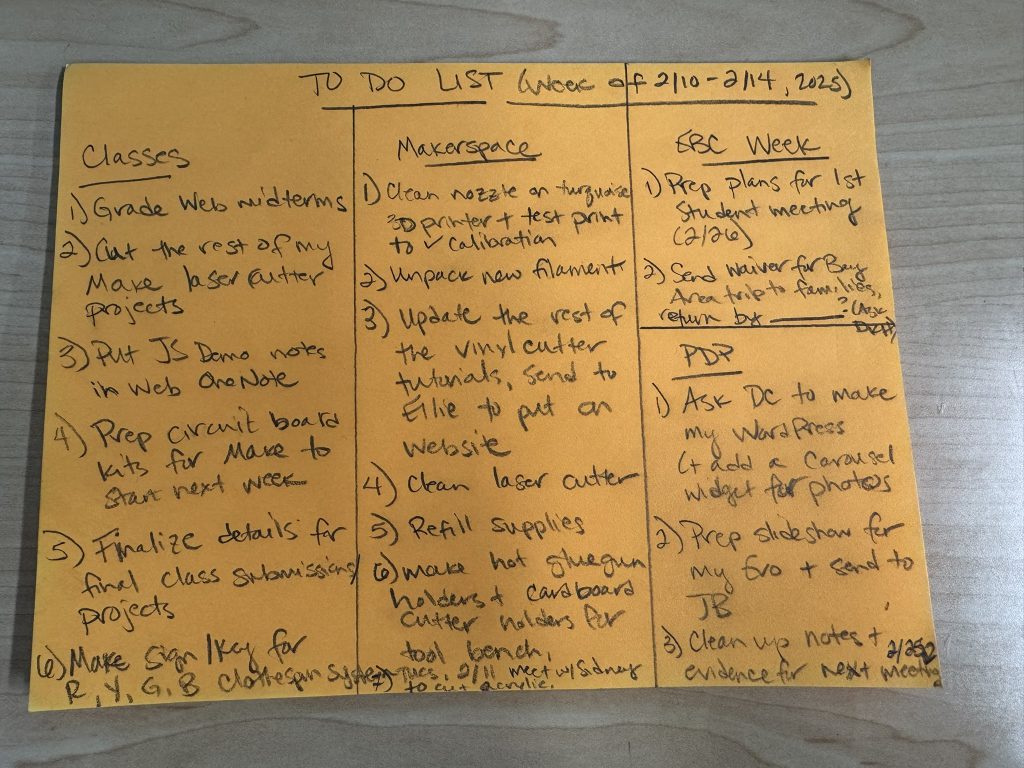 TO DO LIST (Week of 2/10 - 2/14, 2025)
Classes
1) Grade Web midterms
2) Cut the rest of my
Make laser cutter
projects
3) Put JS Demo notes
in Web OneNote
4) Prep circuit board
kits for Make to
start next week
5) Finalize details for
final class submissions/
projects
6) Make sign/key for
R, Y, G, B clothespin system
Makerspace
1) Clean nozzle on turquoise
3D printer + test print
to ✓ calibration
2) Unpack new filament
3) Update the rest of
the vinyl cutter
tutorials, send to
Ellie to put on
website
4) Clean laser cutter
5) Refill supplies
6) make hot glue gun
holders + cardboard
cutter holders for
tool bench.
7) Tues, 2/11 meet w/ Sidney
to cut acrylic.
EBC Week
1) Prep plans for 1st
Student meeting
(2/26)
2) Send waiver for Bay
Area trip to families,
return by ______? (Ask
PDP
1) Ask DC to make
my WordPress
(+ add a carousel
widget for photos
2) Prep slideshow for
my Evo + send to
JB
3) Clean up notes +
evidence for next meeting